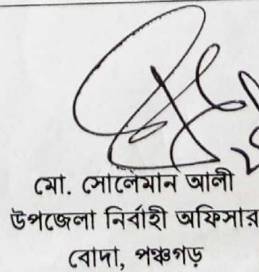 মো. সোলেমান আলী
উপজেলা নির্বাহী অফিসার
বোদা, পঞ্চগড়